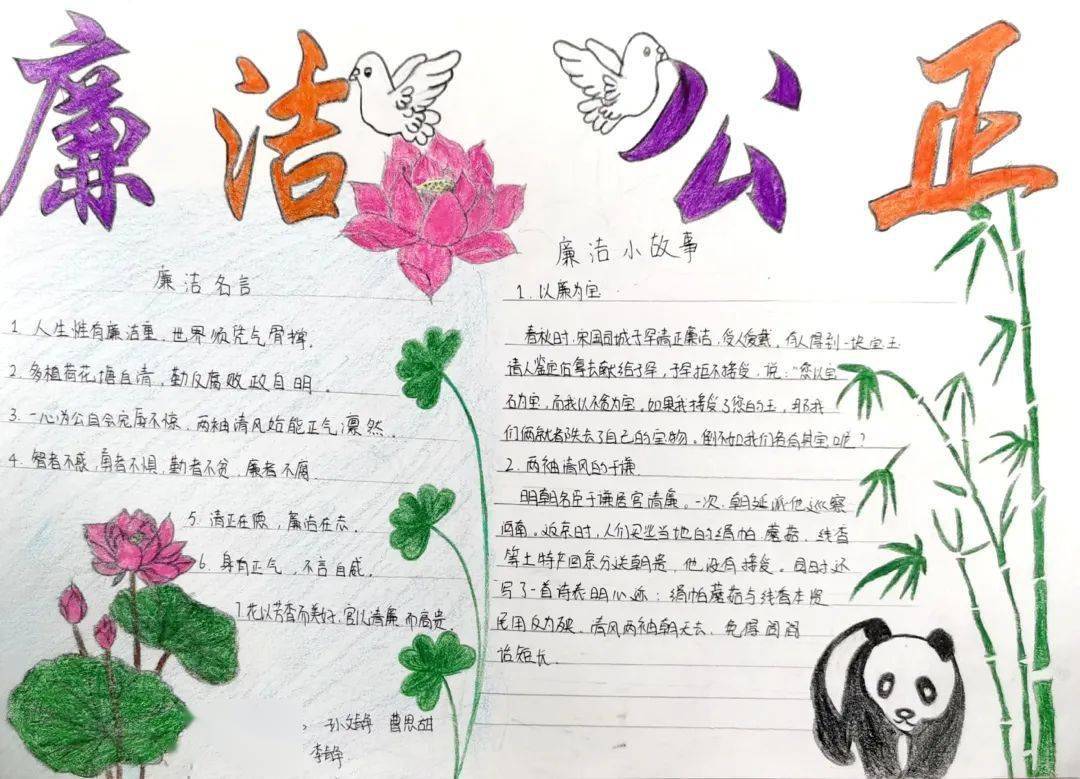 廉洁公正
廉洁名言
1. 人生性有廉洁重，世界须凭气骨撑。
2. 多植荷花塘自清，勤反腐败政自明。
3. 一心为公自会宠辱不惊，两袖清风始能正气凛然。
4. 智者不惑，勇者不惧，勤者不贫，廉者不腐
5. 清正在德，廉洁在志。
6. 身有正气，不言自威。
7. 花以芳香而美好，官以清廉而高贵。
孙 曹思甜
李
廉洁小故事
1. 以廉为宝
春秋时，宋国司城子罕清正廉洁，受人爱戴，有人得到一块宝玉
请人鉴定后拿去献给子罕，子罕拒不接受，说："您以宝
石为宝，而我以不贪为宝。如果我接受了您的玉，那我
们俩就都失去了自己的宝物。倒不如我们各有其宝呢？
2. 两袖清风的于谦
明朝名臣于谦居官清廉。一次，朝廷派他巡察
河南。返京时，人们买些当地的绢帕 蘑菇、线香
等土特产回京分送朝贵，他没有接受。同时还
写了一首诗表明心迹：绢帕蘑菇与线香本资
民用反为殃，清风两袖朝天去，免得闾阎
话短长